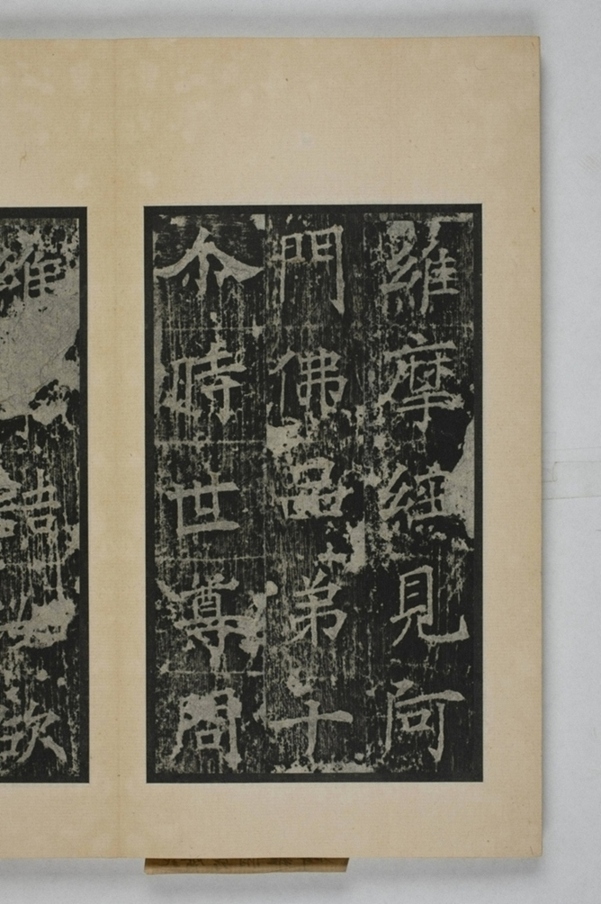 維摩經見阿
門佛品弟十
尒時世尊問
維詰欲